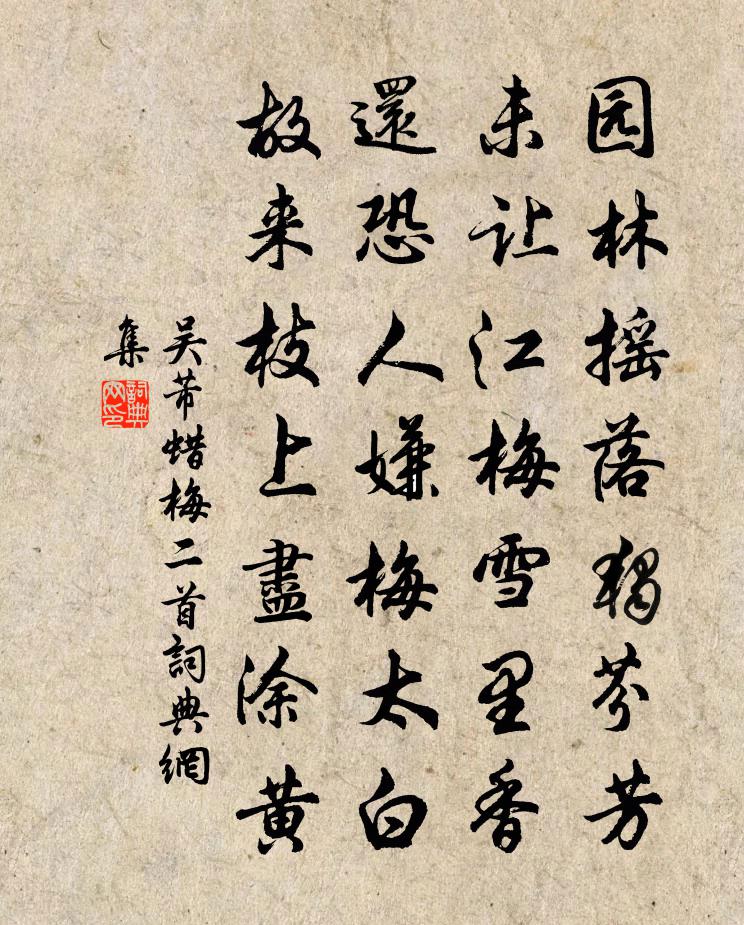 园林摇落独芬芳
未让江梅雪里香
還恐人嫌梅太白
故来枝上盡涂黄
吴芾蜡梅二首詞典網
集
詞典網印